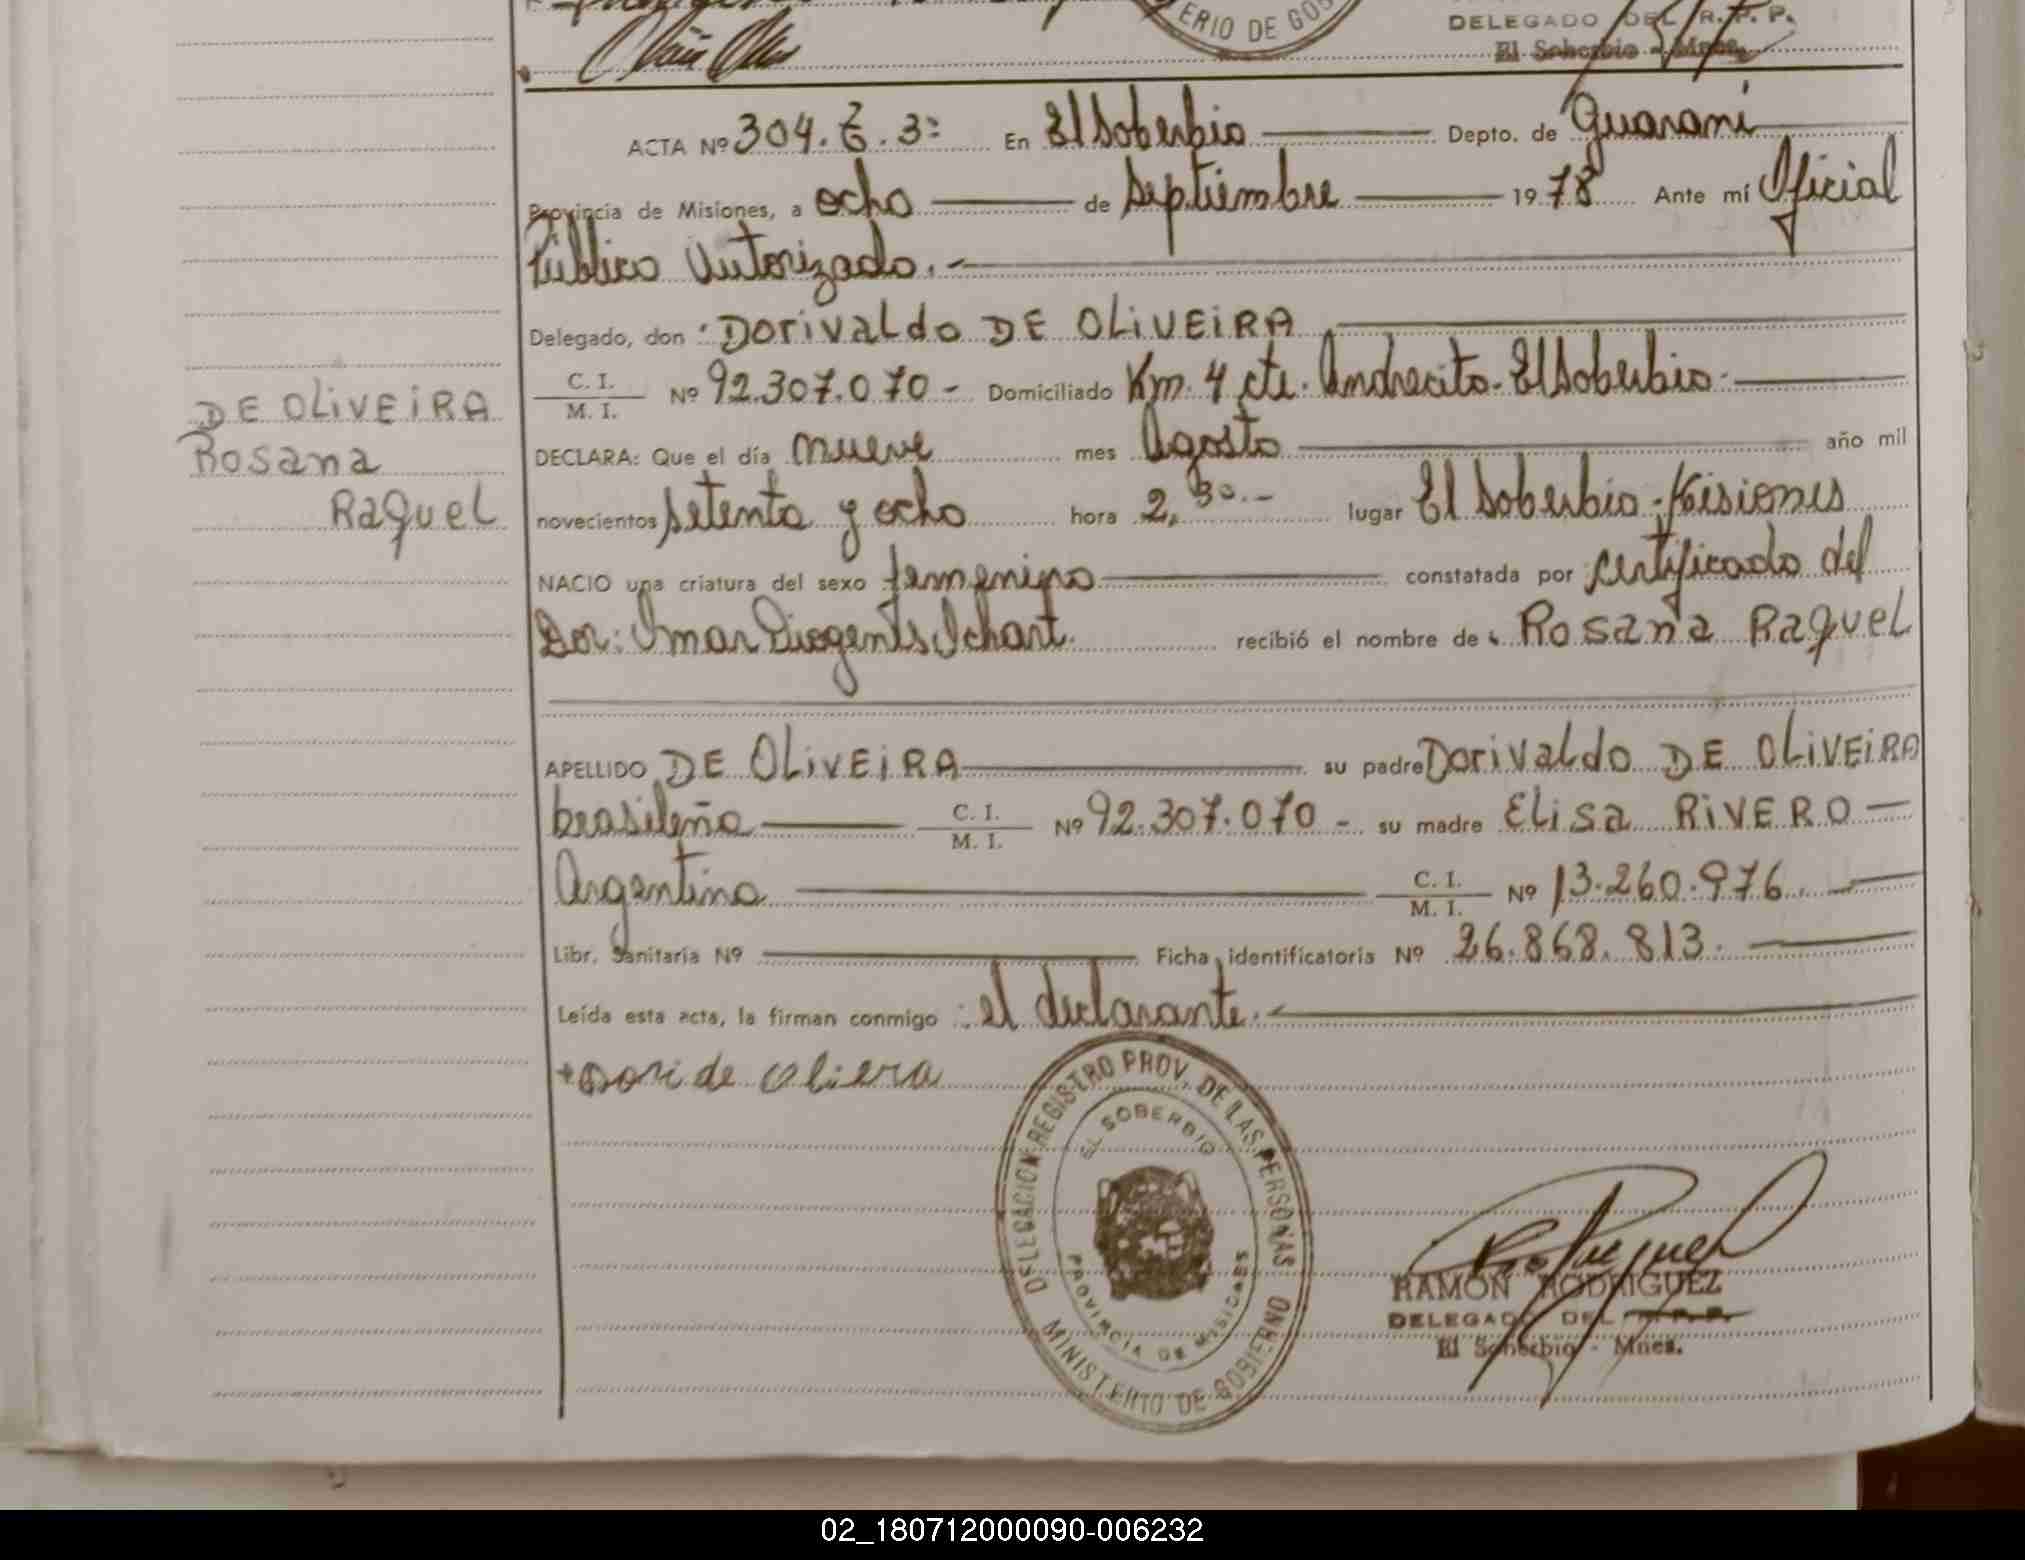 ERIO DE GOB
DELEGADO DEL R. P. P.
El Soberbio - Mnes.
ACTA Nº 304. T. 3º En El Soberbio Depto. de Guaraní
Provincia de Misiones, a ocho de Septiembre 1978 Ante mí Oficial
Público Autorizado.-
Delegado, don DORIVALDO DE OLIVEIRA
C. I.
M. I. Nº 92.307.070- Domiciliado Km. 4 cte. Andrecito - El Soberbio -
DE OLIVEIRA
Rosana
Raquel
DECLARA: Que el día nueve mes Agosto año mil
novecientos setenta y ocho hora 2,30.- lugar El Soberbio - Misiones
NACIO una criatura del sexo femenino constatada por certificado del
Dor: Omar Diogenes Ichart. recibió el nombre de Rosana Raquel
APELLIDO DE OLIVEIRA su padre Dorivaldo DE OLIVEIRA
brasileño C. I.
M. I. Nº 92.307.070- su madre Elisa RIVERO
Argentina C. I.
M. I. Nº 13.260.976.
Libr. Sanitaria Nº Ficha identificatoria Nº 26.868.813.
Leída esta acta, la firman conmigo : el declarante.
Dori de Oliera
DELEGACION REGISTRO PROV. DE LAS PERSONAS
EL SOBERBIO
PROVINCIA DE MISIONES
MINISTERIO DE GOBIERNO
RAMON RODRIGUEZ
DELEGADO DEL R. P. P.
El Soberbio - Mnes.
02_180712000090-006232